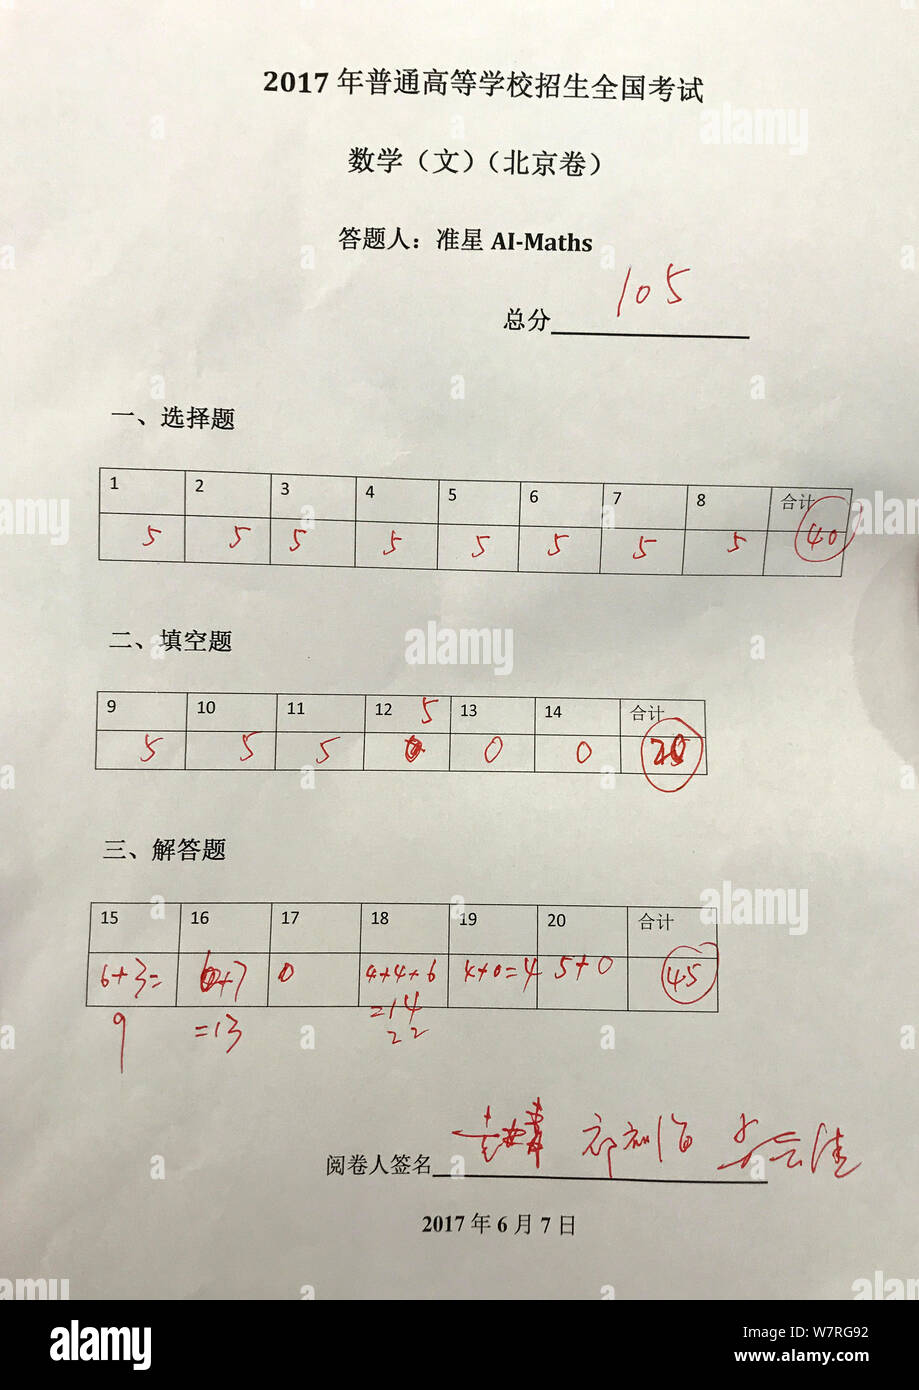 2017 年普通高等学校招生全国考试
数学（文）（北京卷）
答题人：准星 AI-Maths
总分 105
一、选择题
1 2 3 4 5 6 7 8 合计
5 5 5 5 5 5 5 5 40
二、填空题
9 10 11 12 5 13 14 合计
5 5 5 0 0
三、解答题
15 16 17 18 19 20 合计
6+3= 6+7 0 4+4+6 4+0=4 5+0 45
9 =13 =14
22
阅卷人签名
2017 年 6 月 7 日
alamy
Image ID: W7RG92
www.alamy.com